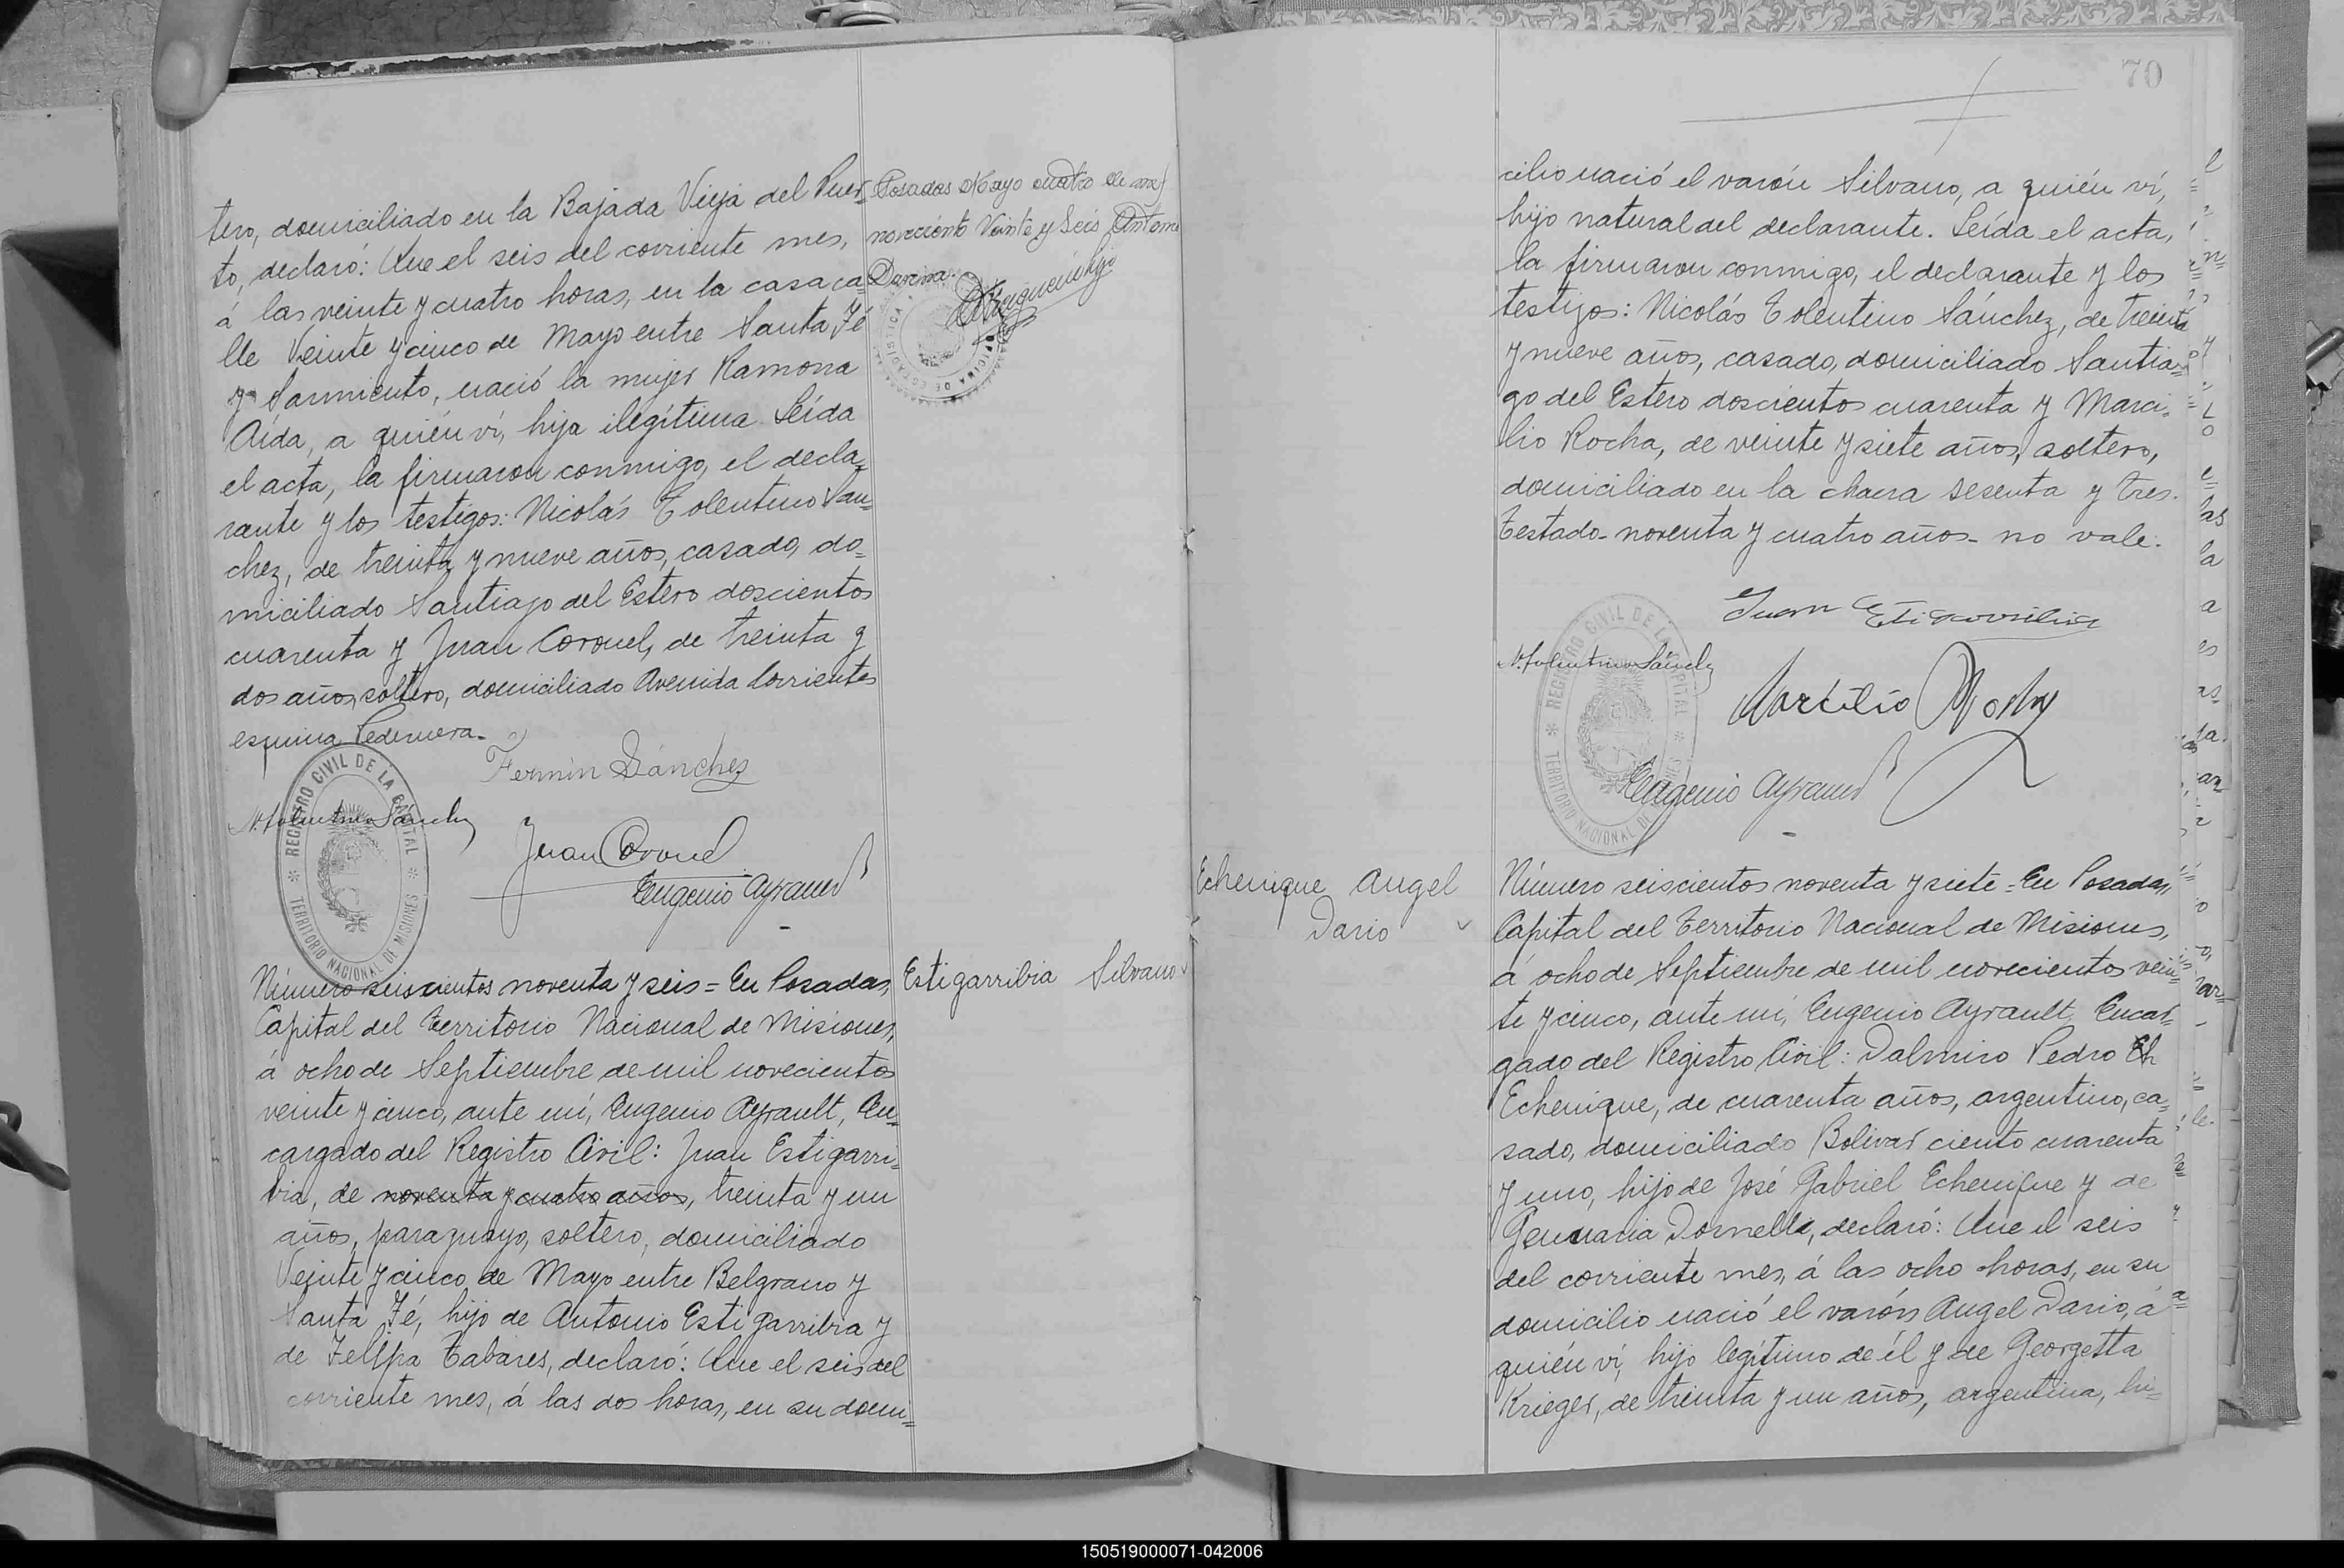 tero, domiciliado en la Bajada Vieja del Puer-
to, declaró: Que el seis del corriente mes,
á las veinte y cuatro horas, en la casa ca-
lle Veinte y cinco de Mayo entre Santa Fé
y Sarmiento, nació la mujer Ramona
Aída, a quién ví, hija ilegítima. Leída
el acta, la firmaron conmigo, el decla-
rante y los testigos: Nicolás Tolentino San-
chez, de treinta y nueve años, casado, do-
miciliado Santiago del Estero doscientos
cuarenta y Juan Coronel, de treinta y
dos años, soltero, domiciliado Avenida Corrientes
esquina Pedernera.
Posadas Mayo cuatro de mil
novecientos Veinte y Seis
Fermín Sánchez
N. Tolentino Sánchez
Juan Coronel
Eugenio Ayrault
REGISTRO CIVIL DE LA CAPITAL
TERRITORIO NACIONAL DE MISIONES
Estigarribia Silvano
Número seiscientos noventa y seis = En Posadas,
Capital del Territorio Nacional de Misiones,
á ocho de Septiembre de mil novecientos
veinte y cinco, ante mí, Eugenio Ayrault, En-
cargado del Registro Civil: Juan Estigarri-
bia, de noventa y cuatro años, treinta y un
años, paraguayo, soltero, domiciliado
Veinte y cinco de Mayo entre Belgrano y
Santa Fé, hijo de Antonio Estigarribia y
de Felipa Tabares, declaró: Que el seis del
corriente mes, á las dos horas, en su domi-
70
cilio nació el varón Silvano, a quién ví,
hijo natural del declarante. Leída el acta,
la firmaron conmigo, el declarante y los
testigos: Nicolás Tolentino Sánchez, de treinta
y nueve años, casado, domiciliado Santia-
go del Estero doscientos cuarenta y Marci-
lio Rocha, de veinte y siete años, soltero,
domiciliado en la chacra sesenta y tres.
Testado - noventa y cuatro años - no vale.
Juan Estigarribia
N. Tolentino Sánchez
Marcilio Rocha
Eugenio Ayrault
REGISTRO CIVIL DE LA CAPITAL
TERRITORIO NACIONAL DE MISIONES
Echenique Angel
Dario
Número seiscientos noventa y siete = En Posadas,
Capital del Territorio Nacional de Misiones,
á ocho de Septiembre de mil novecientos vein-
te y cinco, ante mí, Eugenio Ayrault, Encar-
gado del Registro Civil: Dalmiro Pedro Eh
Echenique, de cuarenta años, argentino, ca-
sado, domiciliado Bolivar ciento cuarenta
y uno, hijo de José Gabriel Echenique y de
Genuaria Dornelle, declaró: Que el seis
del corriente mes, á las ocho horas, en su
domicilio nació el varón Angel Dario, á
quién ví, hijo legítimo de él y de Georgetta
Krieger, de treinta y un años, argentina, hi-
150519000071-042006